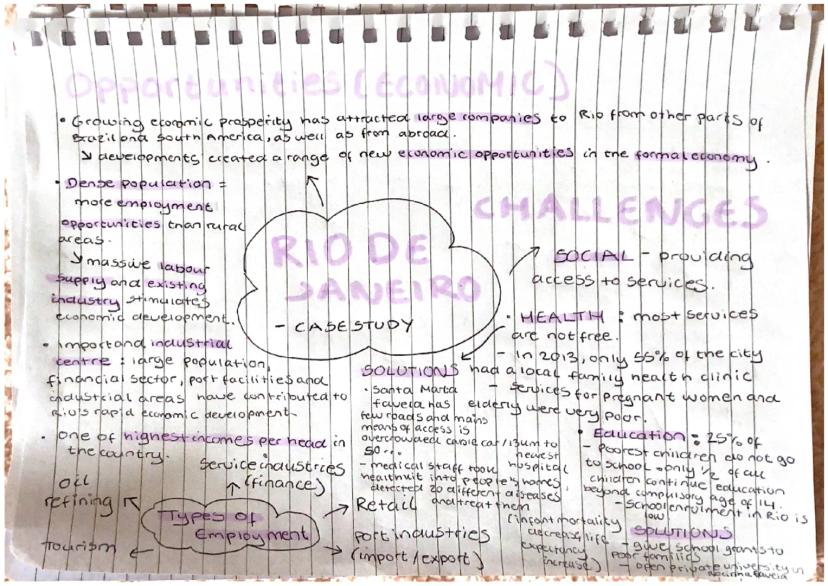 Opportunities (ECONOMIC)
• Growing economic prosperity has attracted large companies to Rio from other parts of
Brazil and South America, as well as from abroad.
↘ developments created a range of new economic opportunities in the formal economy.
• Dense population =
more employment
opportunities than rural
areas.
↘ massive labour
supply and existing
industry stimulates
economic development.
• Importand industrial
centre : large population,
financial sector, port facilities and
industrial areas have contributed to
Rio's rapid economic development.
• one of highest incomes per head in
the country.
RIO DE
JANEIRO
- CASE STUDY
CHALLENGES
SOCIAL - providing
access to services.
• HEALTH : most services
are not free.
- In 2013, only 55% of the city
had a local family health clinic
- services for pregnant women and
elderly were very poor.
SOLUTIONS
• Santa Marta
favela has
few roads and mains
means of access is
overcrowded cable car / 13km to
newest
hospital
- medical staff took
health kit into people's homes,
detected 20 different diseases
and treat them
(infant mortality
decrease, life
expectancy
increase)
• Education : 25% of
- poorest children do not go
to school - only 1/2 of all
children continue education
beyond compulsory age of 14.
- School enrolment in Rio is
low
SOLUTIONS
- give school grants to
poor families
- open private university in
favela
Types of
Employment
service industries
(finance)
oil
refining
Tourism
Retail
port industries
(import / export)